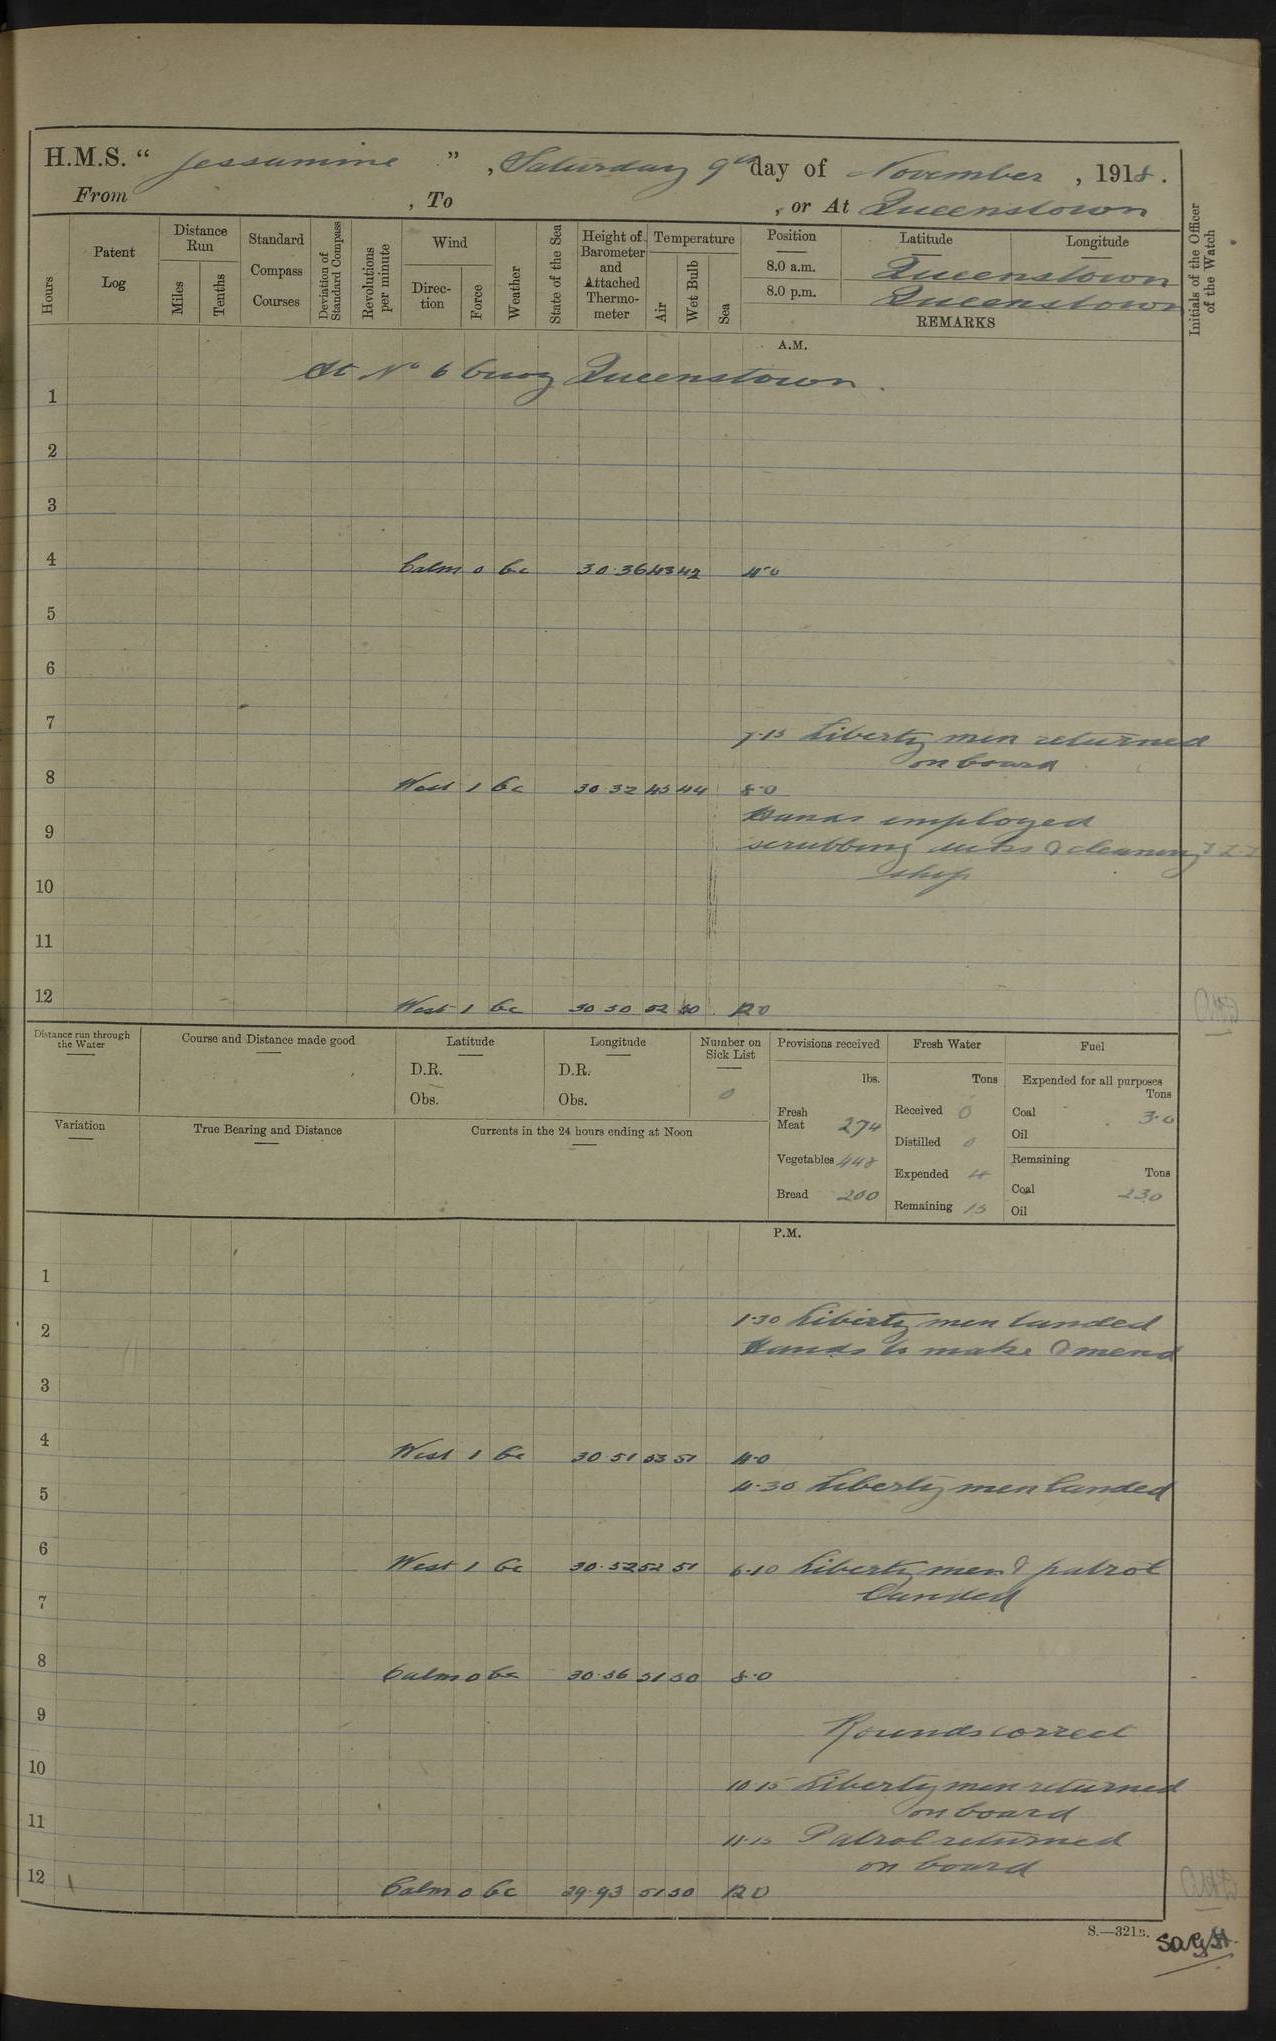 H.M.S. “ Jessamine ” , Saturday 9th day of November , 1918 .
From , To , or At Queenstown
Hours
Patent Log
Distance Run
Miles
Tenths
Standard Compass Courses
Deviation of Standard Compass
Revolutions per minute
Wind
Direction
Force
Weather
State of the Sea
Height of Barometer and Attached Thermometer
Temperature
Air
Wet Bulb
Sea
Position Latitude Longitude
8.0 a.m. Queenstown
8.0 p.m. Queenstown
REMARKS
Initials of the Officer of the Watch
A.M.
At No 6 buoy Queenstown.
1
2
3
4 Calm 0 bc 30.36 43 42 4.0
5
6
7
7.15 Liberty men returned
on board
8 West 1 bc 30 32 45 44 8.0
Hands employed
9
scrubbing decks & cleaning
ship
10
11
12 West 1 bc 30 50 52 50 12 0
Distance run through the Water
Course and Distance made good
Latitude
D.R.
Obs.
Longitude
D.R.
Obs.
Number on Sick List
0
Provisions received
lbs.
Fresh Meat 274
Vegetables 448
Bread 200
Fresh Water
Tons
Received 0
Distilled 0
Expended 4
Remaining 15
Fuel
Expended for all purposes
Tons
Coal 3.0
Oil
Remaining
Tons
Coal 230
Oil
Variation
True Bearing and Distance
Currents in the 24 hours ending at Noon
P.M.
1
1.30 Liberty men landed
2
Hands to make & mend
3
4 West 1 bc 30 51 53 51 4.0
4.30 Liberty men landed
5
6 West 1 bc 30.52 52 51 6.10 Liberty men & patrol
landed
7
8 Calm 0 bc 30.56 51 50 8.0
9
Rounds correct
10
10 15 Liberty men returned
on board
11
11.15 Patrol returned
on board
12 Calm 0 bc 29.93 51 50 12 0
S.—321B.